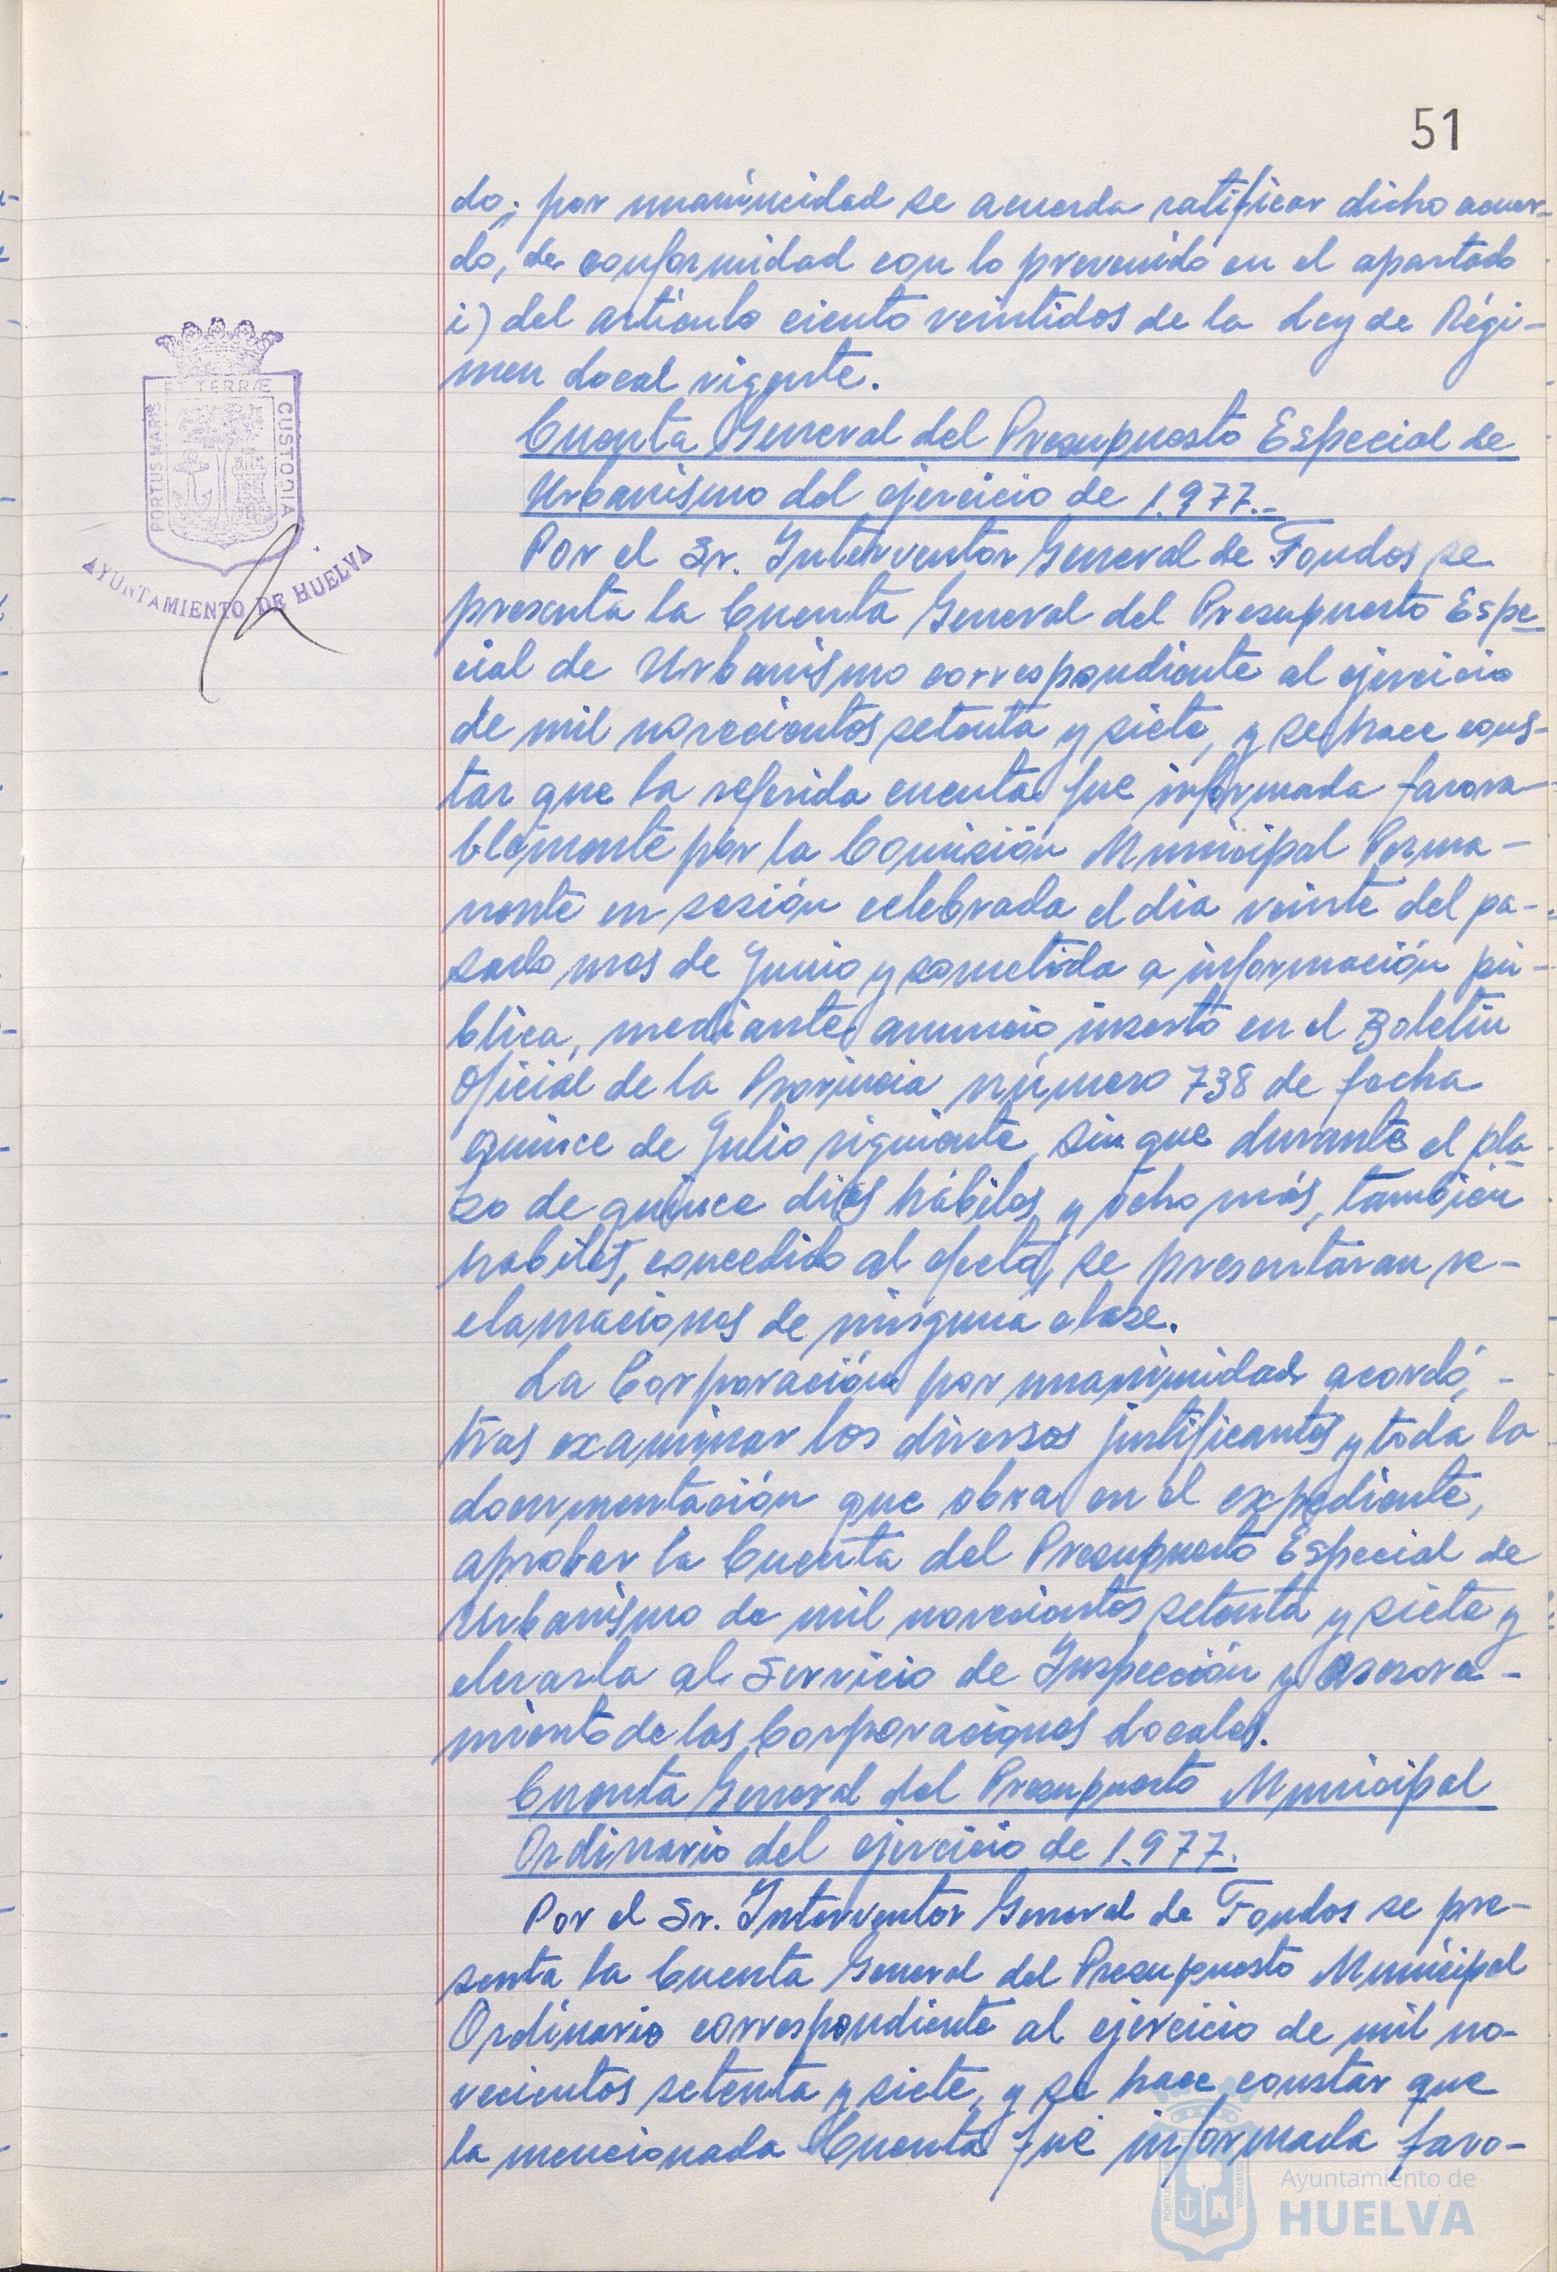 51
do; por unanimidad se acuerda ratificar dicho acuer-
do, de conformidad con lo prevenido en el apartado
i) del artículo ciento veintidos de la Ley de Régi-
men Local vigente.
Cuenta General del Presupuesto Especial de
Urbanismo del ejercicio de 1.977.-
Por el Sr. Interventor General de Fondos se
presenta la Cuenta General del Presupuesto Espe-
cial de Urbanismo correspondiente al ejercicio
de mil novecientos setenta y siete, y se hace cons-
tar que la referida cuenta fue informada favora-
blemente por la Comisión Municipal Perma-
nente en sesión celebrada el dia veinte del pa-
sado mes de Junio y sometida a información pú-
blica, mediante anuncio inserto en el Boletin
Oficial de la Provincia número 738 de fecha
quince de Julio siguiente, sin que durante el pla-
zo de quince dias hábiles y ocho más, también
habiles, concedido al efecto, se presentaran re-
clamaciones de ninguna clase.
La Corporación por unanimidad acordó, -
tras examinar los diversos justificantes y toda la
documentación que obra en el expediente,
aprobar la Cuenta del Presupuesto Especial de
Urbanismo de mil novecientos setenta y siete y
elevarla al Servicio de Inspección y Asesora-
miento de las Corporaciones Locales.
Cuenta General del Presupuesto Municipal
Ordinario del ejercicio de 1.977.
Por el Sr. Interventor General de Fondos se pre-
senta la Cuenta General del Presupuesto Municipal
Ordinario correspondiente al ejercicio de mil no-
vecientos setenta y siete, y se hace constar que
la mencionada Cuenta fué informada favo-
PORTUS MARIS
ET TERRÆ
CUSTODIA
AYUNTAMIENTO DE HUELVA
Ayuntamiento de
HUELVA